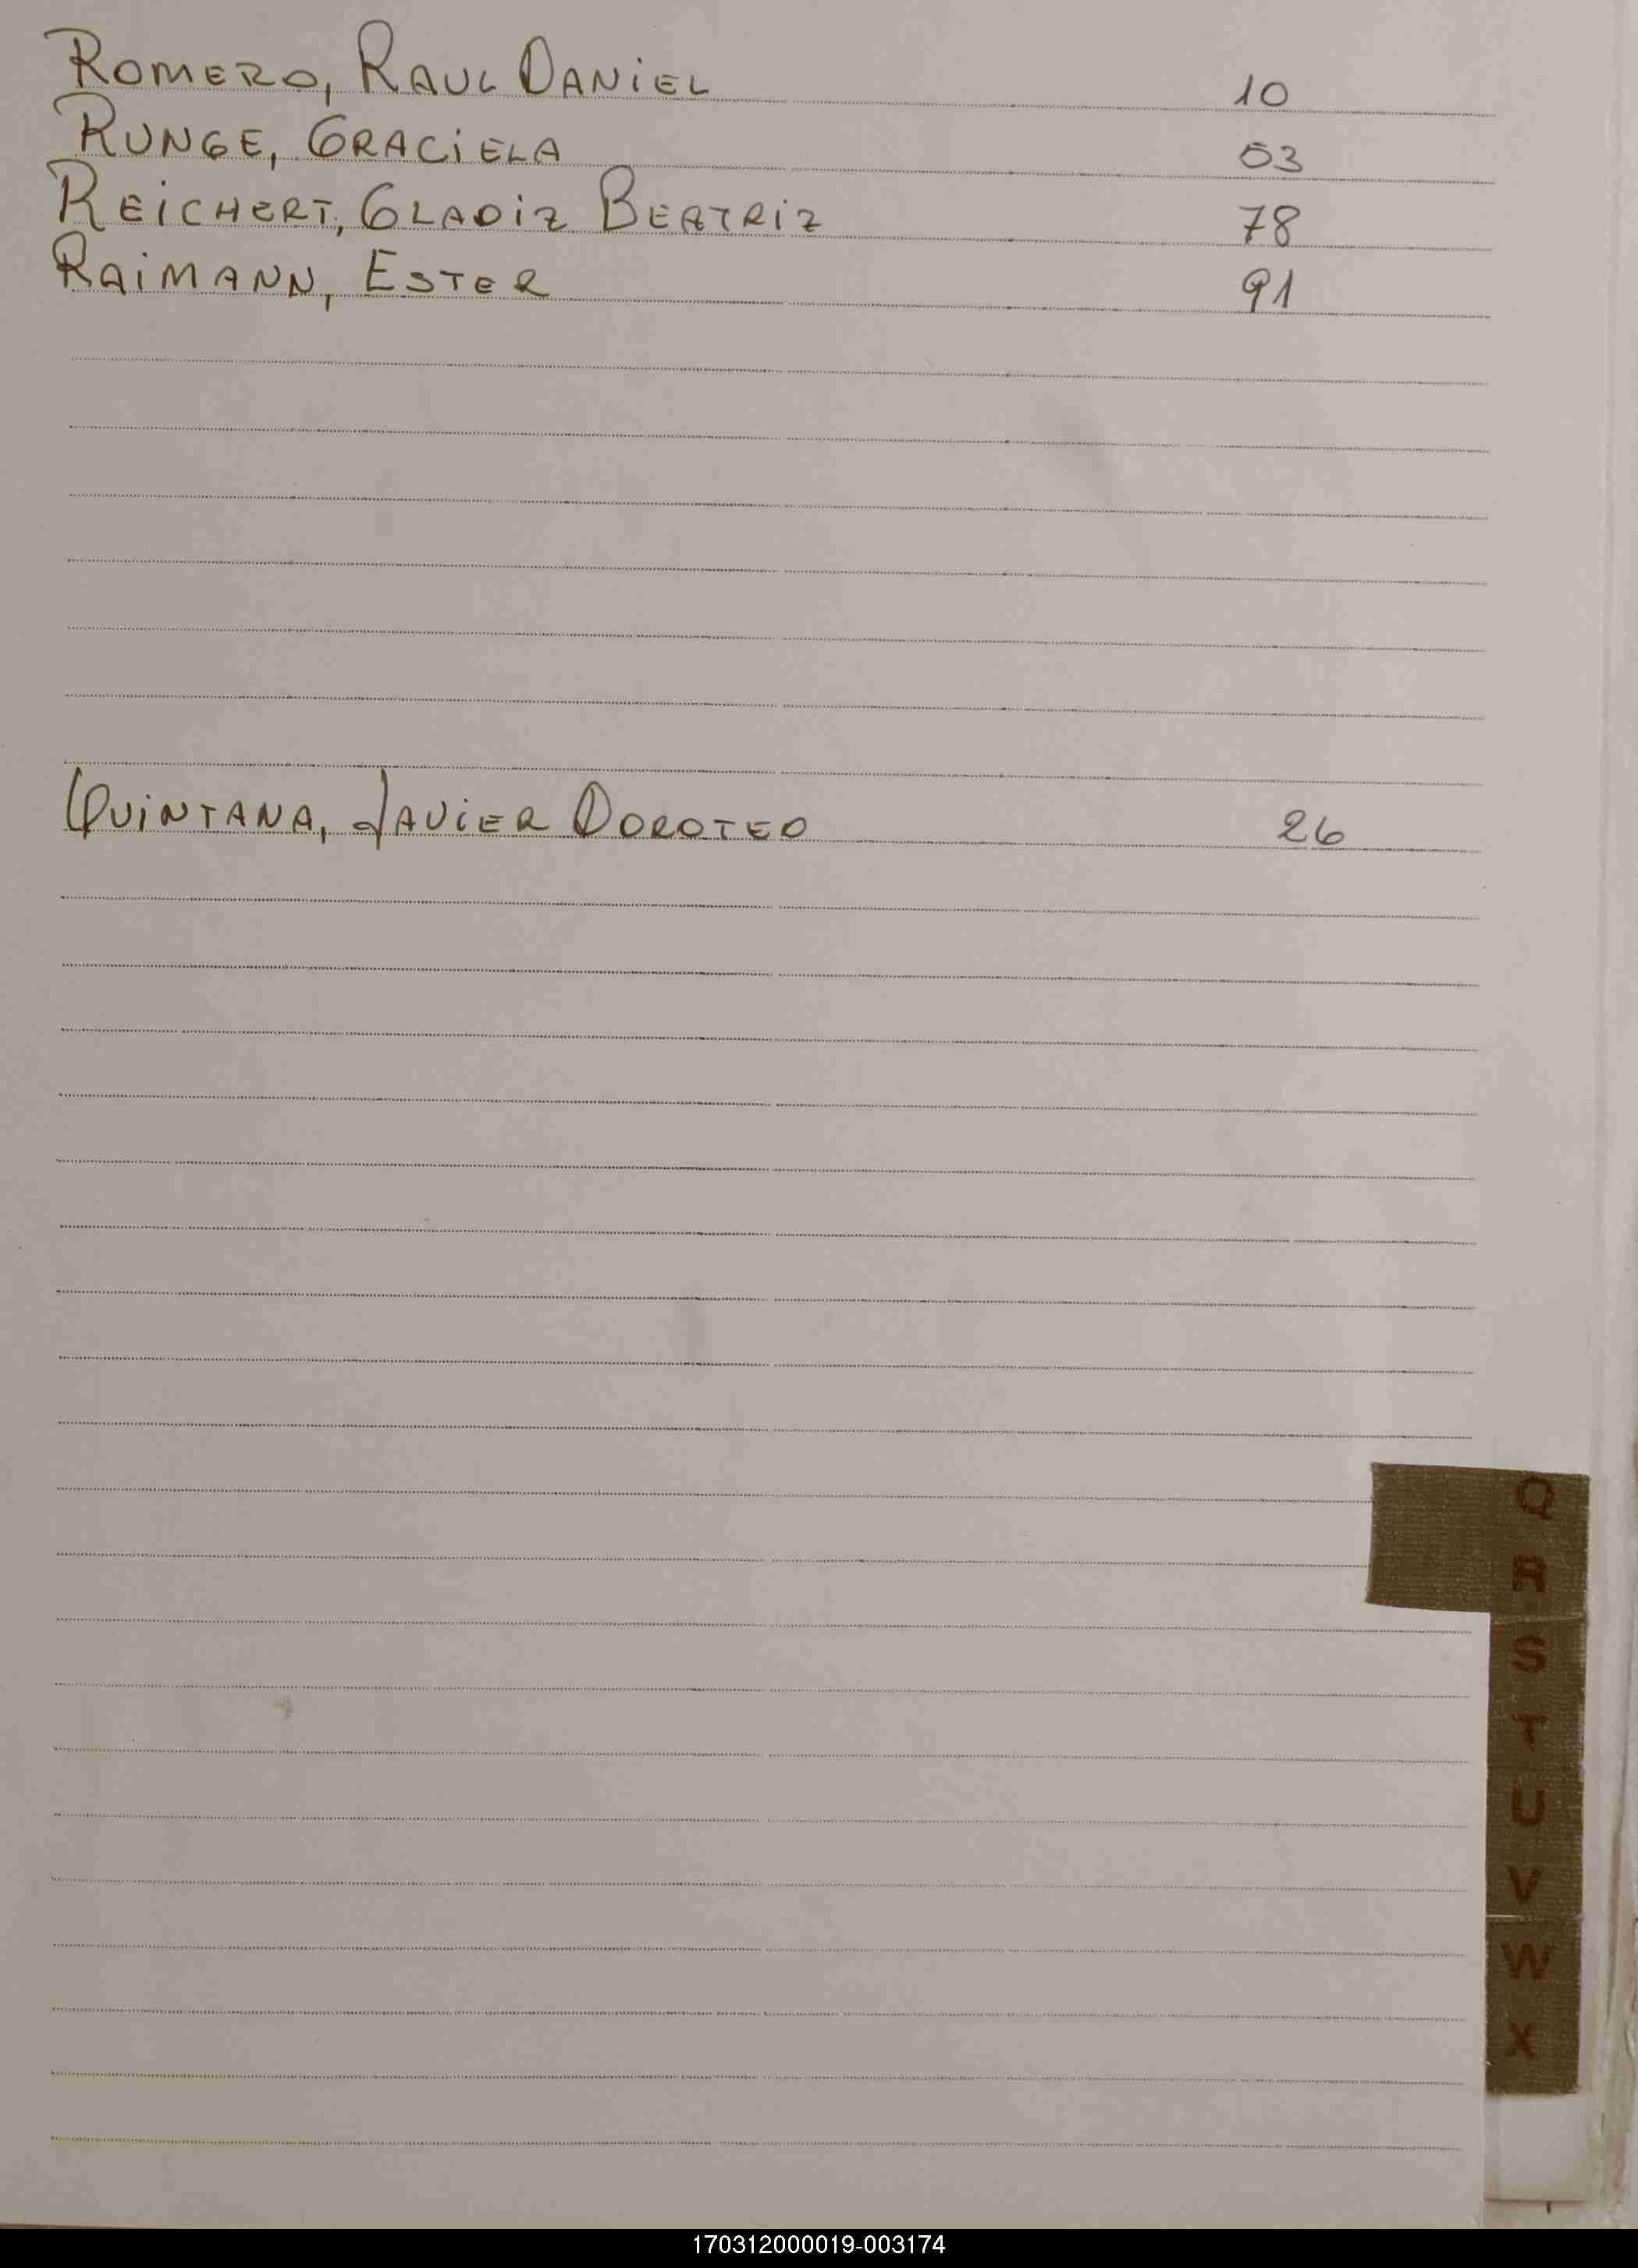 Romero, Raul Daniel 10
Runge, Graciela 53
Reichert, Gladiz Beatriz 78
Raimann, Ester 91
Quintana, Javier Doroteo 26
Q
R
S
T
U
V
W
X
170312000019-003174